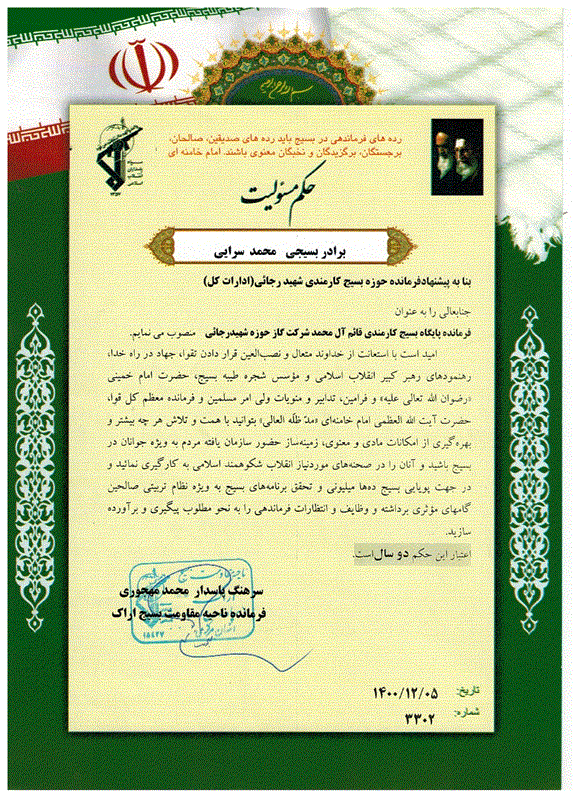 رده های فرماندهی در بسیج باید رده های صدیقین، صالحان،
برجستگان، برگزیدگان و نخبگان معنوی باشند. امام خامنه ای
سپاه
پاسداران
انقلاب
اسلامی
حکم مسئولیت
برادر بسیجی محمد سرایی
بنا به پیشنهادفرمانده حوزه بسیج کارمندی شهید رجائی(ادارات کل)
جنابعالی را به عنوان
فرمانده پایگاه بسیج کارمندی قائم آل محمد شرکت گاز حوزه شهیدرجائی منصوب می نمایم.
امید است با استعانت از خداوند متعال و نصب‌العین قرار دادن تقوا، جهاد در راه خدا،
رهنمودهای رهبر کبیر انقلاب اسلامی و مؤسس شجره طیبه بسیج، حضرت امام خمینی
«رضوان الله تعالی علیه» و فرامین، تدابیر و منویات ولی امر مسلمین و فرمانده معظم کل قوا،
حضرت آیت الله العظمی امام خامنه‌ای «مدّ ظلّه العالی» بتوانید با همت و تلاش هر چه بیشتر و
بهره‌گیری از امکانات مادی و معنوی، زمینه‌ساز حضور سازمان یافته مردم به ویژه جوانان در
بسیج باشید و آنان را در صحنه‌های موردنیاز انقلاب شکوهمند اسلامی به کارگیری نمائید و
در جهت پویایی بسیج ده‌ها میلیونی و تحقق برنامه‌های بسیج به ویژه نظام تربیتی صالحین
گامهای مؤثری برداشته و وظایف و انتظارات فرماندهی را به نحو مطلوب پیگیری و برآورده
سازید.
اعتبار این حکم دو سال است.
سرهنگ پاسدار محمد مهجوری
فرمانده ناحیه مقاومت بسیج اراک
تاریخ: ۱۴۰۰/۱۲/۰۵
شماره: ۳۳۰۲